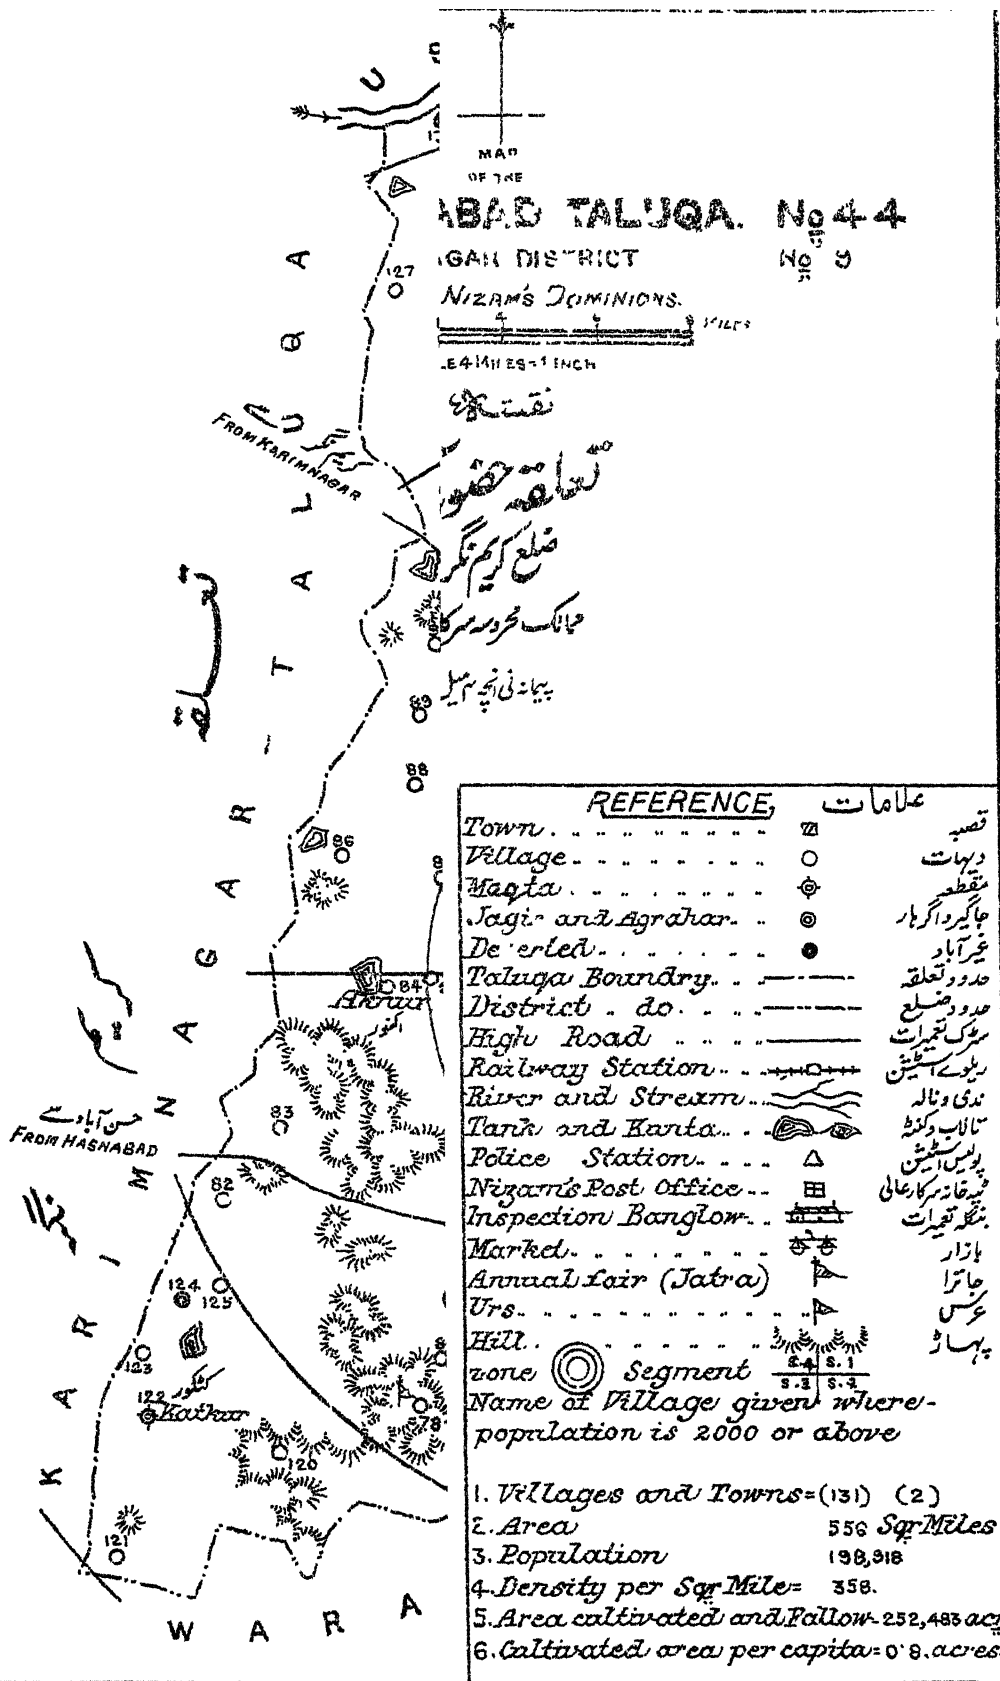 MAP
OF THE
ABAD TALUQA. No 44
GAR DISTRICT No 9
NIZAM'S DOMINIONS.
MILES
4 MILES = 1 INCH
تعلقہ حضو
ضلع کریم نگر
ممالک محروسہ سرکا
پیمانہ فی انچہ ۴ میل
127
FROM KARIMNAGAR
کریم نگر
KARIMNAGAR-TALUQA
تعلقہ
89
88
86
84
Aknur
اکنور
83
حسن آباد سے
FROM HASNABAD
82
124
125
123
کٹکور
122
Katkur
78
120
121
WARA
REFERENCE, علامات
Town قصبہ
Village دیہات
Maqta مقطعہ
Jagir and Agrahar جاگیر و اگرہار
De erted غیر آباد
Taluqa Boundry حدود تعلقہ
District do حدود ضلع
High Road سڑک تعمیرات
Railway Station ریلوے اسٹیشن
River and Stream ندی و نالہ
Tank and Kanta تالاب و کنٹہ
Police Station پولیس اسٹیشن
Nizam's Post Office ٹپہ خانہ سرکار عالی
Inspection Banglow بنگلہ تعمیرات
Market بازار
Annual fair (Jatra) جاترا
Urs عرس
Hill پہاڑ
zone Segment S.4 S.1
S.3 S.2
Name of Village given where-
population is 2000 or above
1. Villages and Towns=(131) (2)
2. Area 556 Sqr Miles
3. Population 198,918
4. Density per Sqr Mile= 358.
5. Area cultivated and Fallow-252,483 acr
6. Cultivated area per capita=0.8.acres